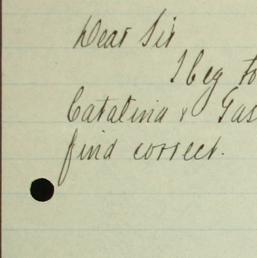 Dear Sir
I beg to
Catalina & Gas
find correct.